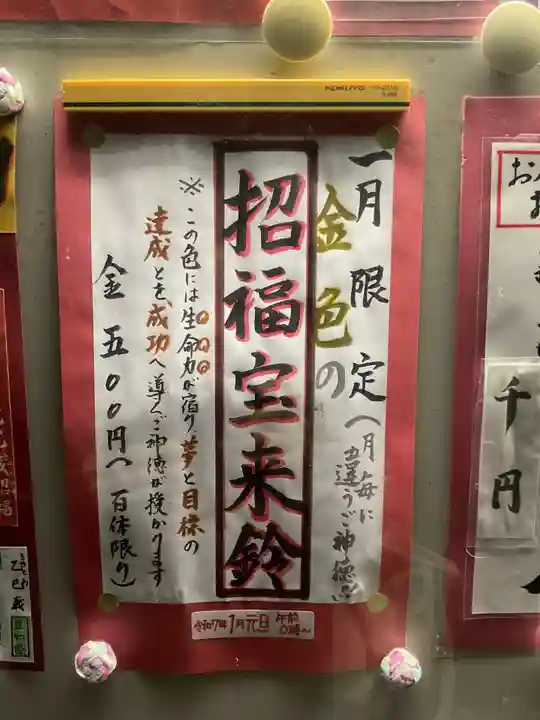 KOKUYO
一月限定(月毎に違うご神徳品)
金色の
招福宝来鈴
※この色には生命力が宿り夢と目標の
達成とを成功へ導くご神徳が授かります
金五〇〇円(百体限り)
令和7年1月元旦 午前0時〜
千円
乙巳歳